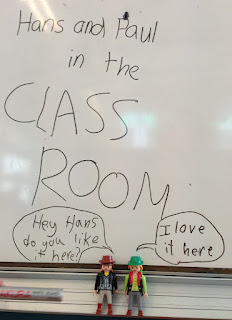 Hans and Paul
in the
CLASS
ROOM
Hey Hans
do you like
it here?
I love
it here